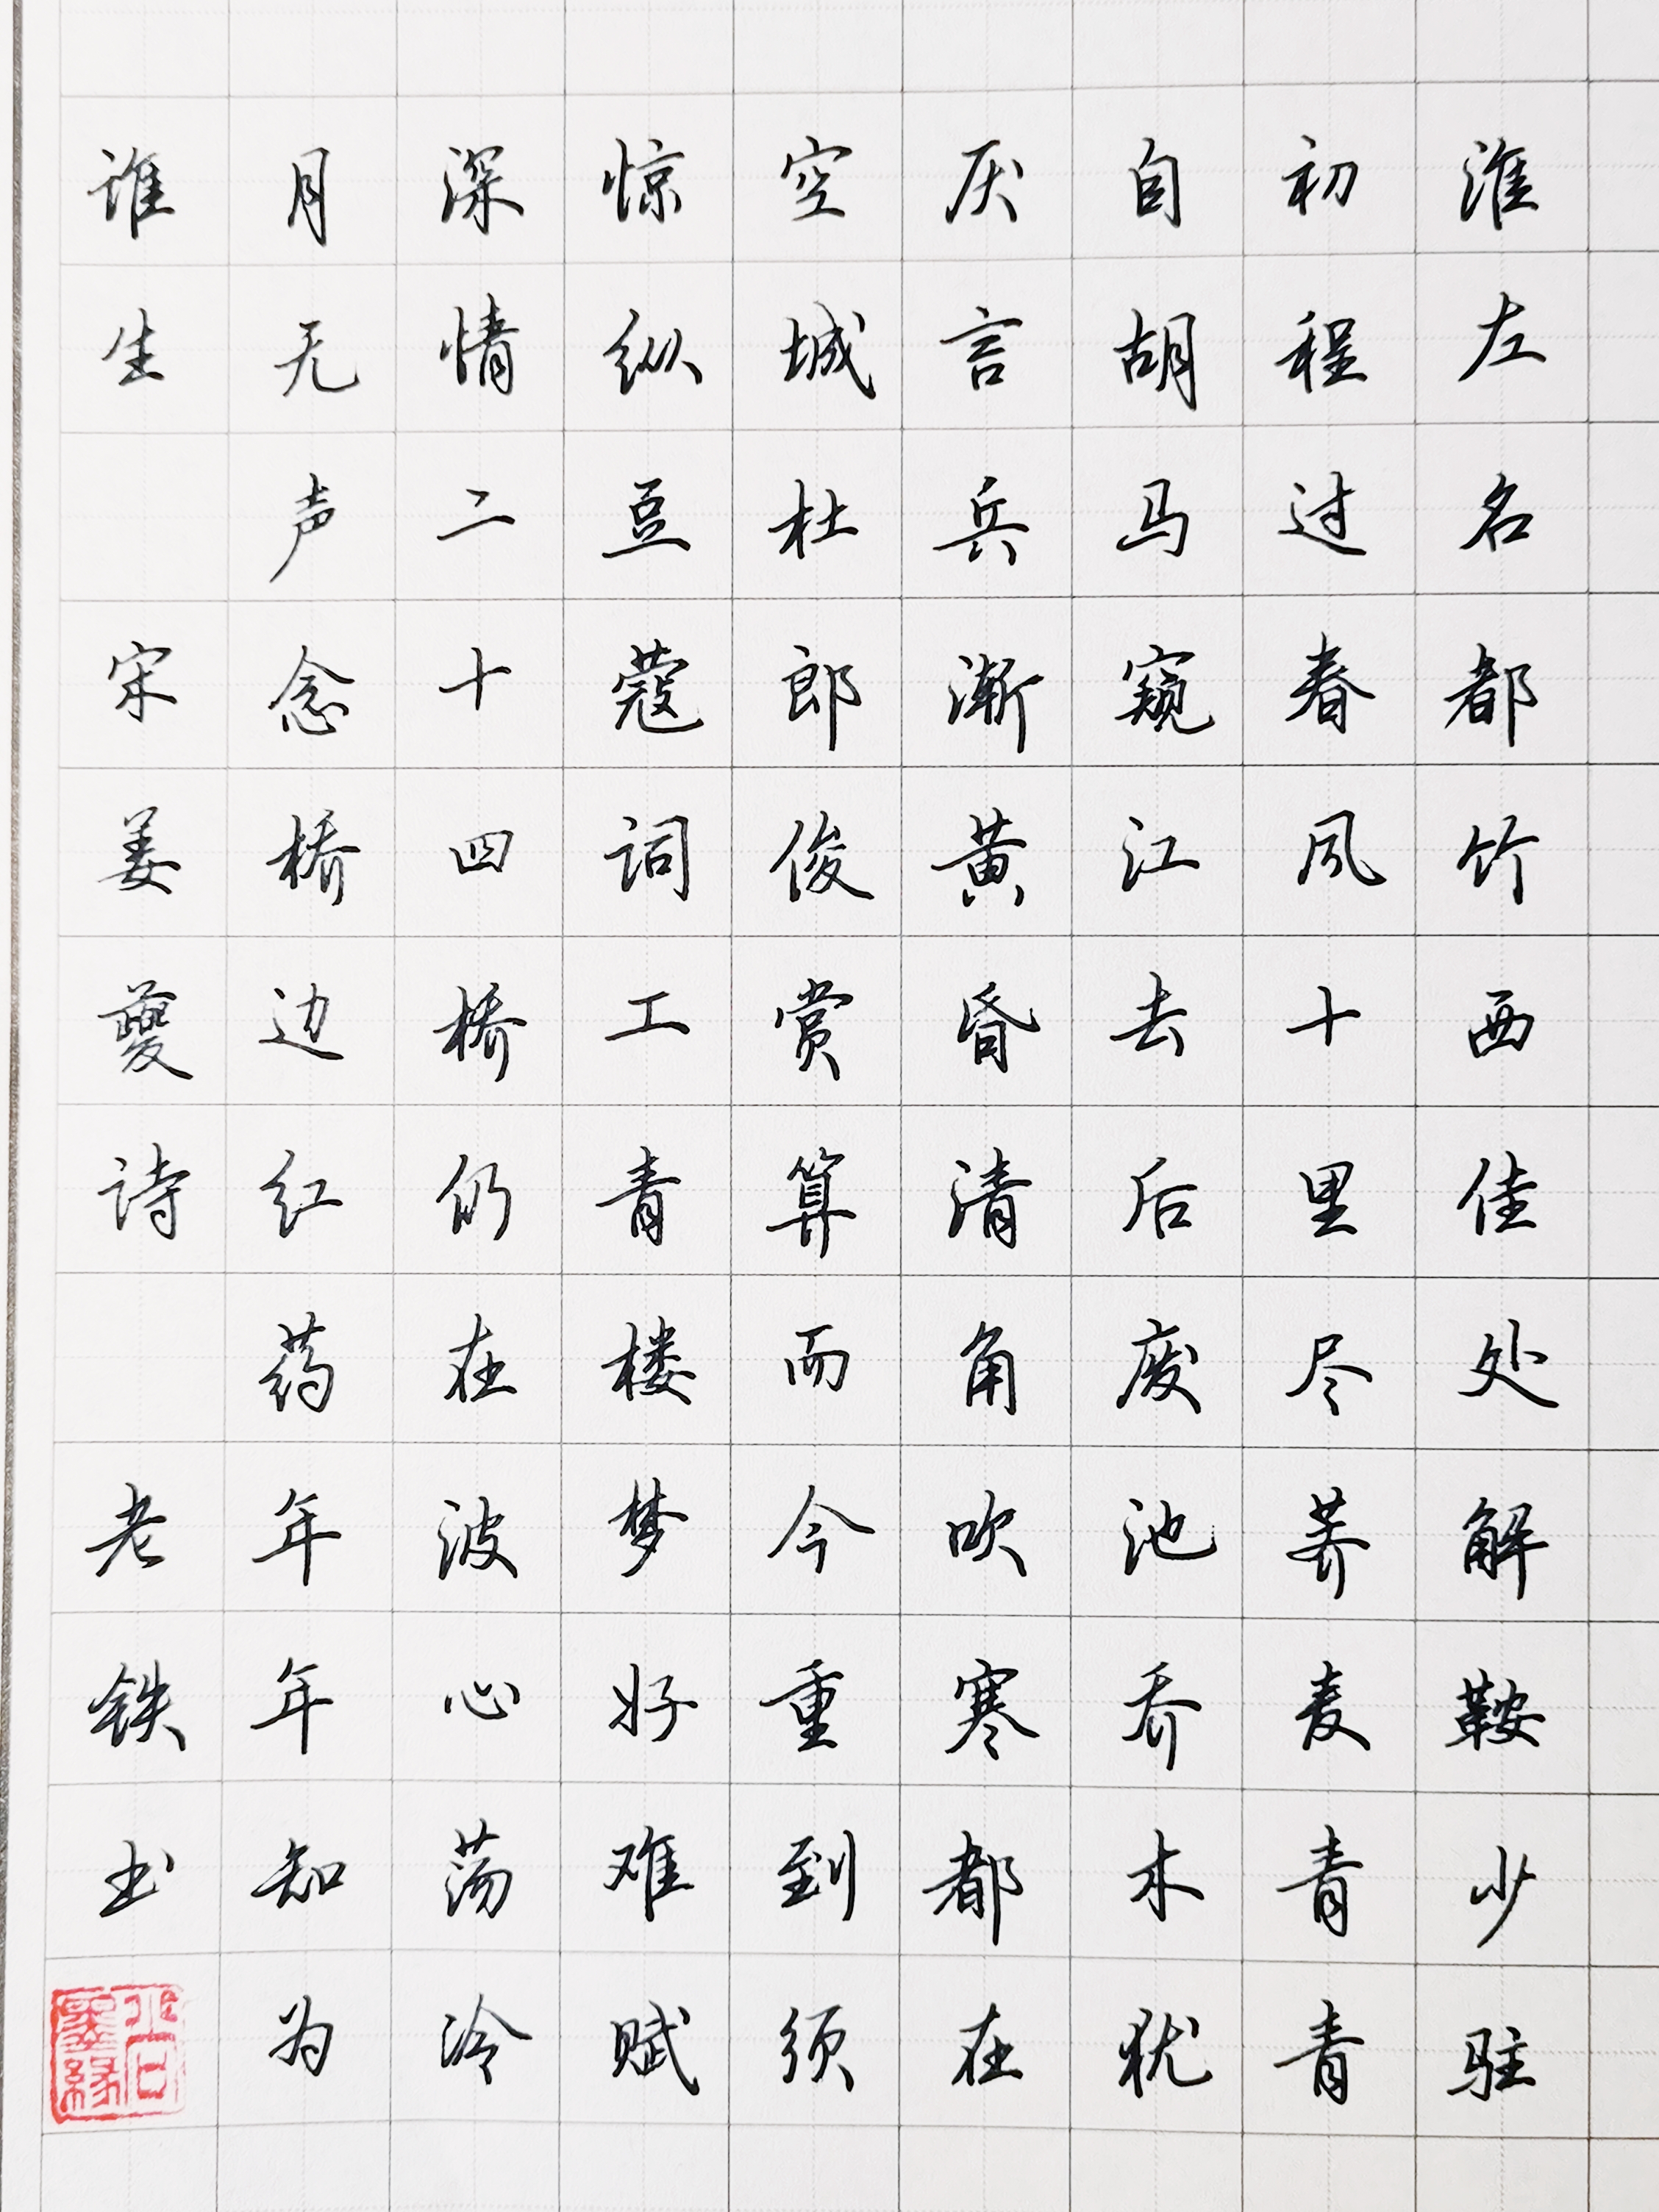 淮左名都竹西佳处解鞍少驻
初程过春风十里尽荠麦青青
自胡马窥江去后废池乔木犹
厌言兵渐黄昏清角吹寒都在
空城杜郎俊赏算而今重到须
惊纵豆蔻词工青楼梦好难赋
深情二十四桥仍在波心荡冷
月无声念桥边红药年年知为
谁生 宋姜夔诗 老铁书